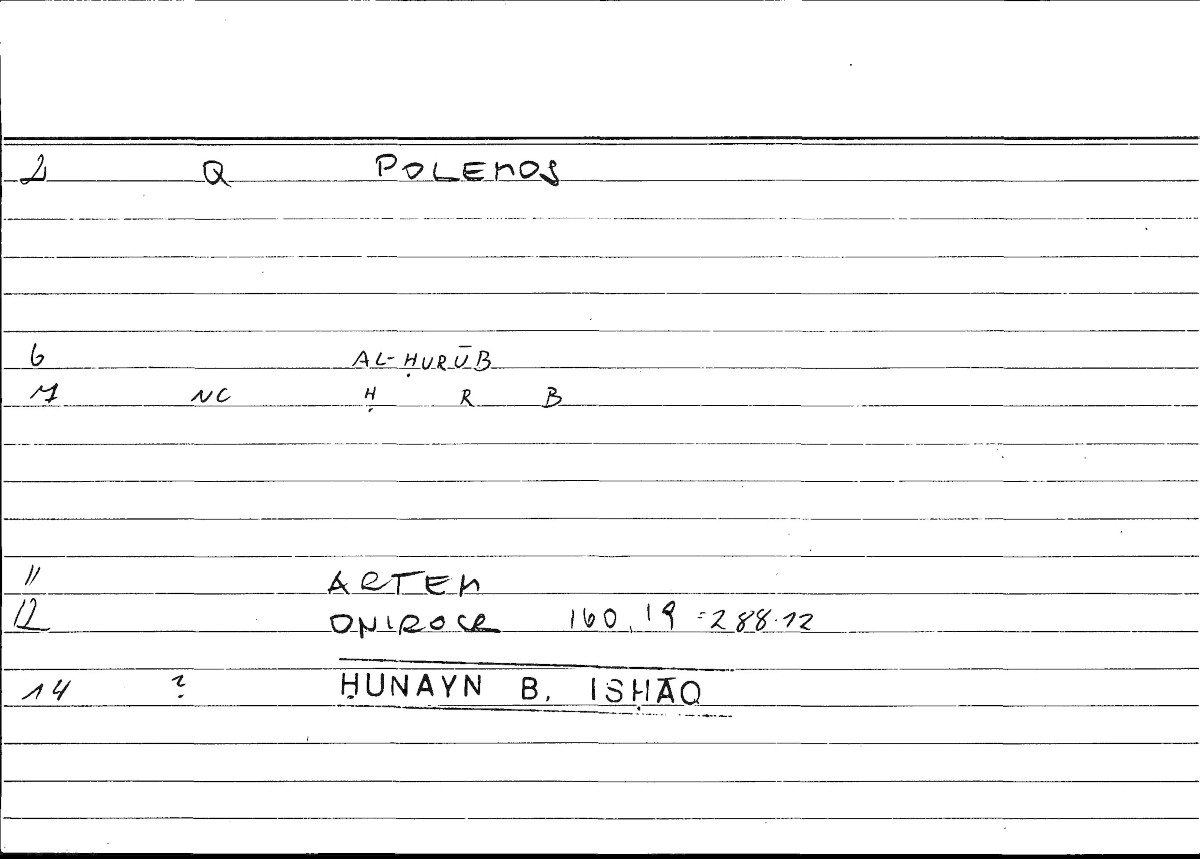 2 Q POLEMOS
6 AL-ḤURŪB
7 NC Ḥ R B
11 ARTEM
12 ONIROCR 160,19 = 288.12
14 ? ḤUNAYN B. ISḤĀQ